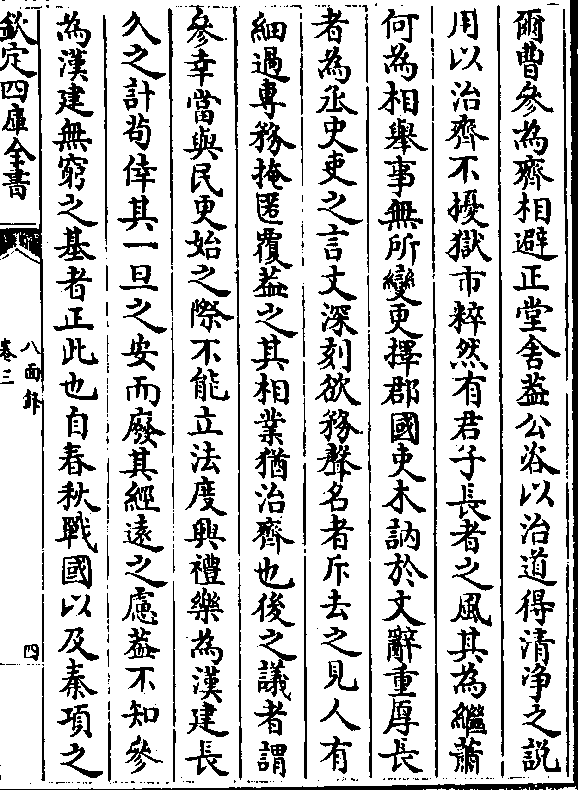 爾曹參為齊相避正堂舍葢公谷以治道得清净之説
用以治齊不擾獄市粹然有君子長者之風其為繼蕭
何為相舉事無所變更擇郡國吏木訥於文辭重厚長
者為丞史吏之言文深刻欲務聲名者斥去之見人有
細過專務掩匿覆葢之其相業猶治齊也後之議者謂
參幸當與民更始之際不能立法度興禮樂為漢建長
久之計苟倖其一旦之安而廢其經遠之慮葢不知參
為漢建無窮之基者正此也自春秋戰國以及秦項之
欽定四庫全書
八面鋒
卷三
四